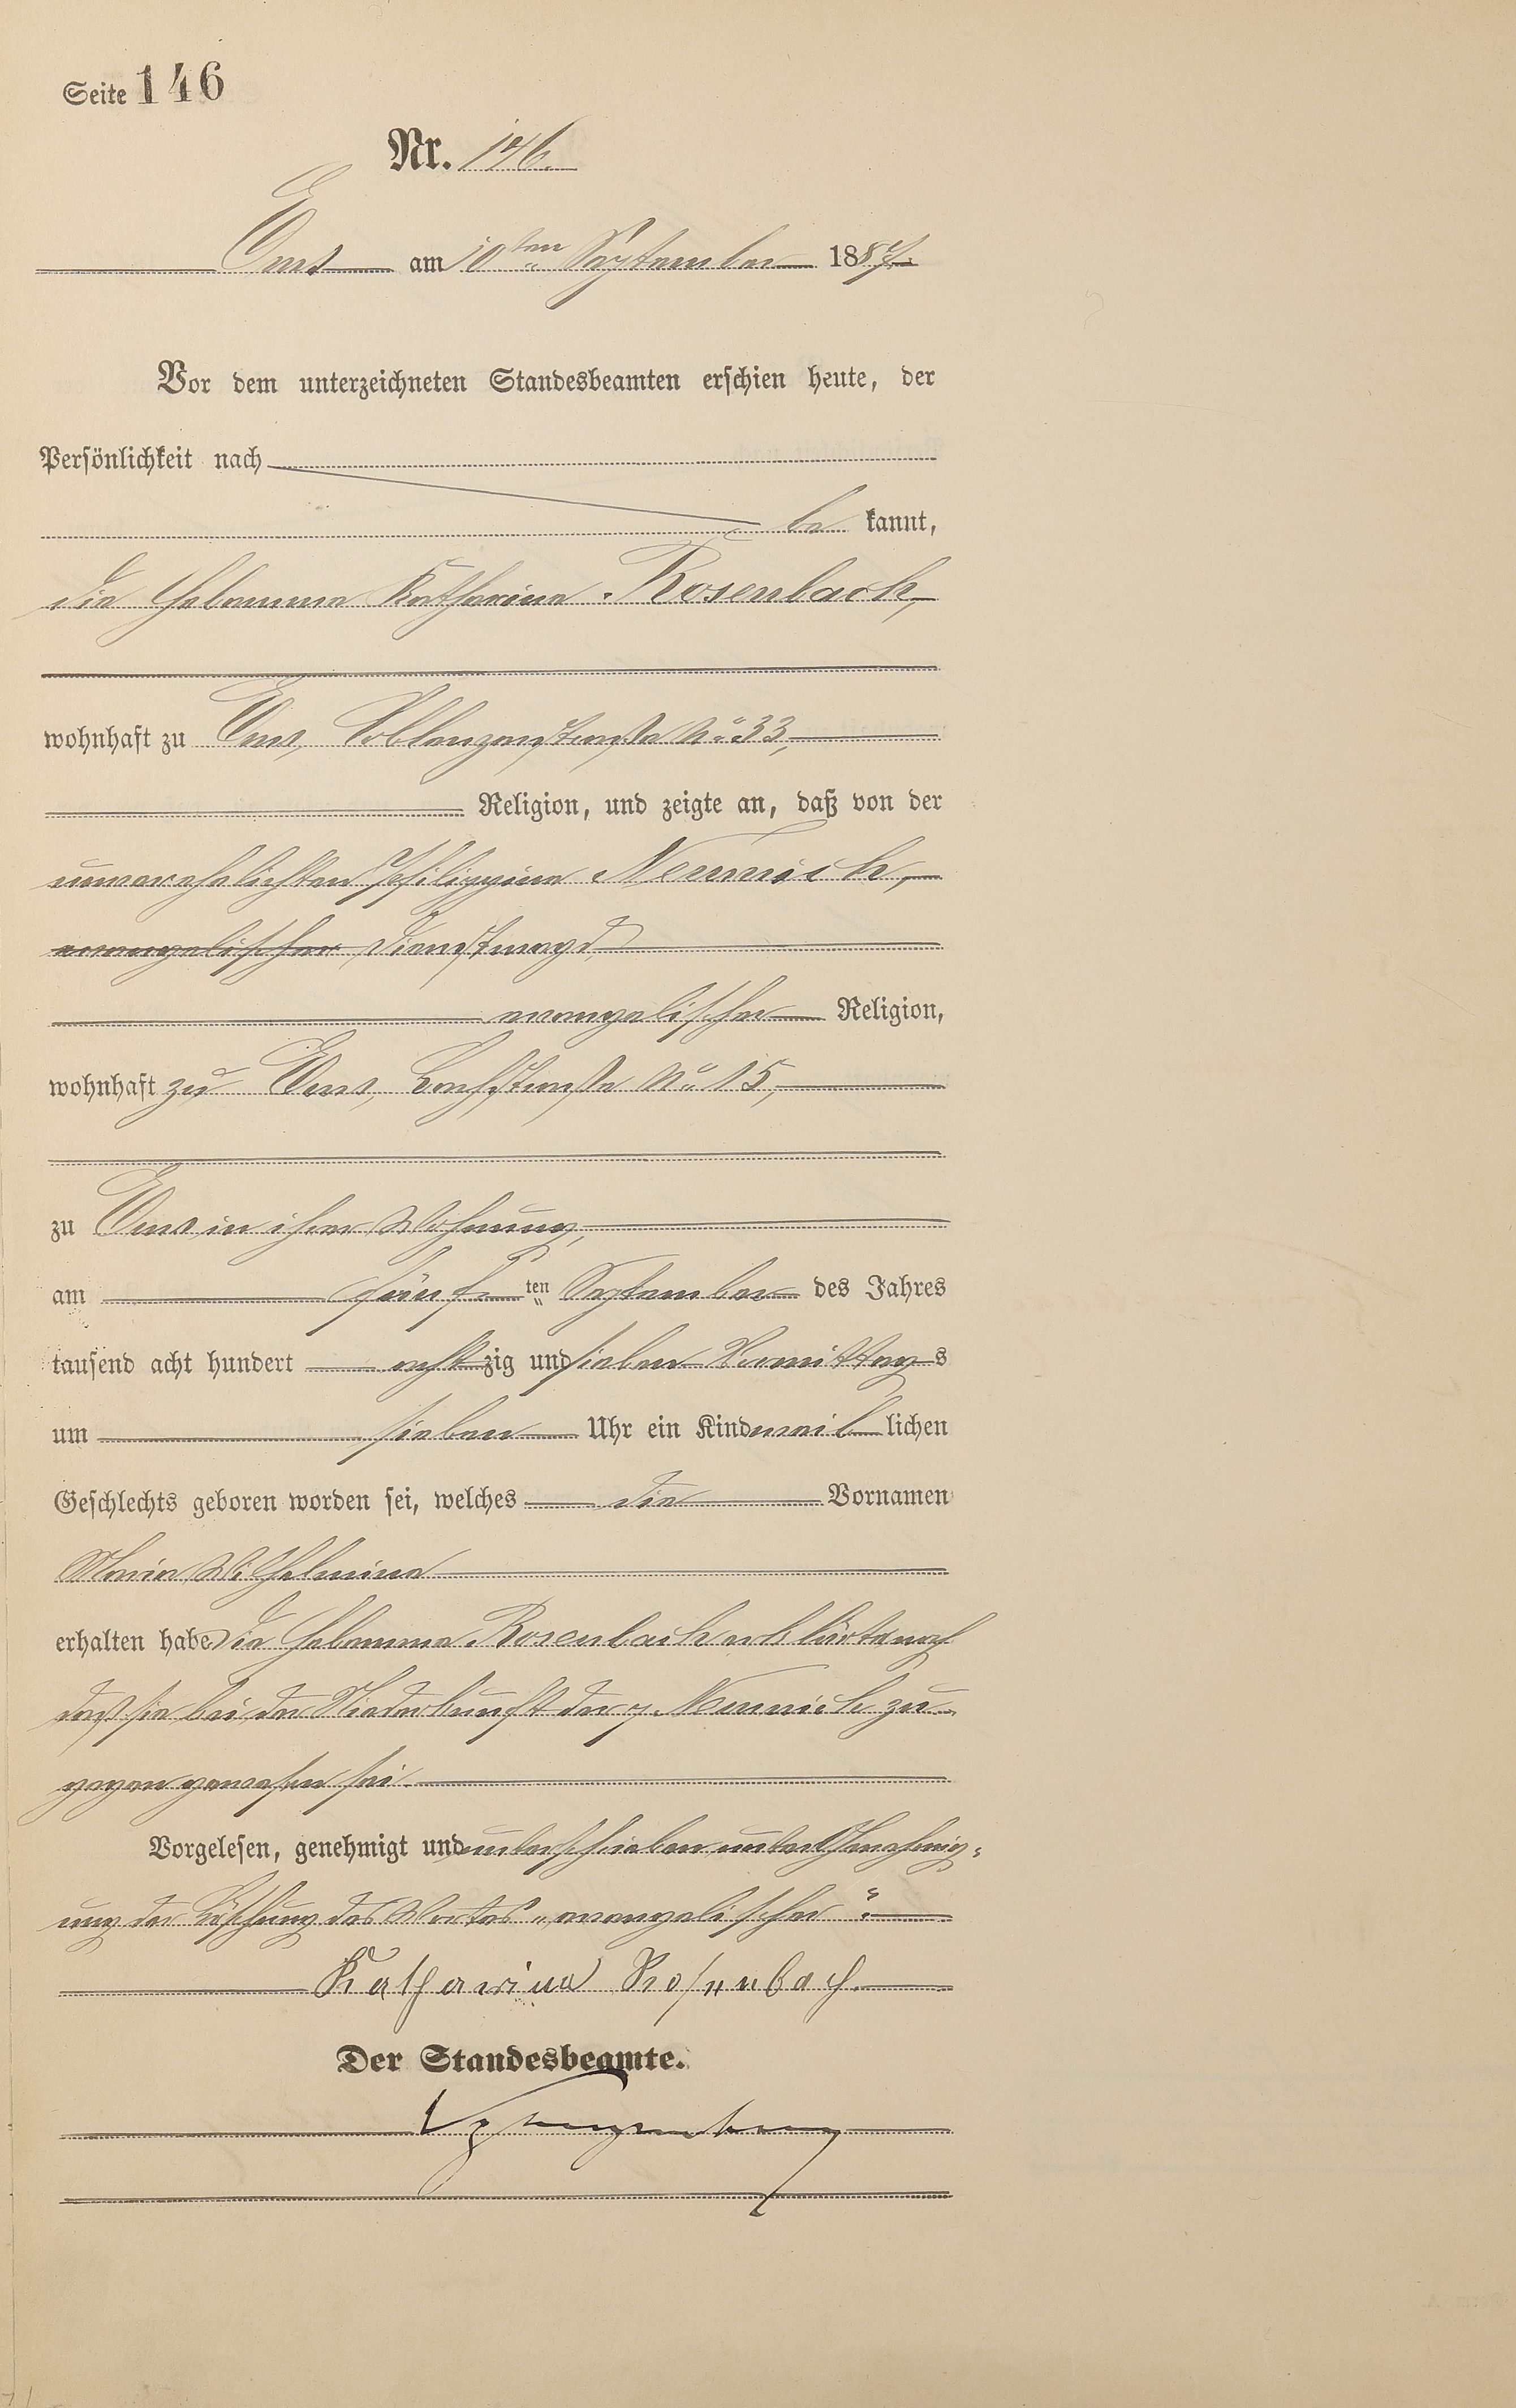 Seite 146
Nr. 146.
Ems am 10ten September 1887.
Vor dem unterzeichneten Standesbeamten erschien heute, der
Persönlichkeit nach
be kannt,
die Hebamme Katharina Rosenbach,
wohnhaft zu Ems, Coblenzerstraße No 33,
Religion, und zeigte an, daß von der
unverehelichten Philippina Nennich,
evangelischer Dienstmagd,
evangelischer Religion,
wohnhaft zu Ems, Bachstraße No 15,
zu Ems in ihrer Wohnung,
am fünften September des Jahres
tausend acht hundert achtzig und sieben Vormittags
um sieben Uhr ein Kind weiblichen
Geschlechts geboren worden sei, welches die Vornamen
Maria Wilhelmina
erhalten habe. Die Hebamme Rosenbach erklärte noch
daß sie bei der Niederkunft der p. Nennich zu-
gegen gewesen sei.
Vorgelesen, genehmigt und unterschrieben unter Genehmig-
ung der Löschung des Wortes „evangelischer“.
Katharina Rosenbach.
Der Standesbeamte.